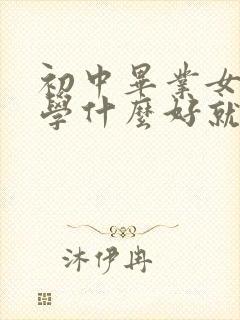 初中畢業女
學什麼好就
沐伊冉